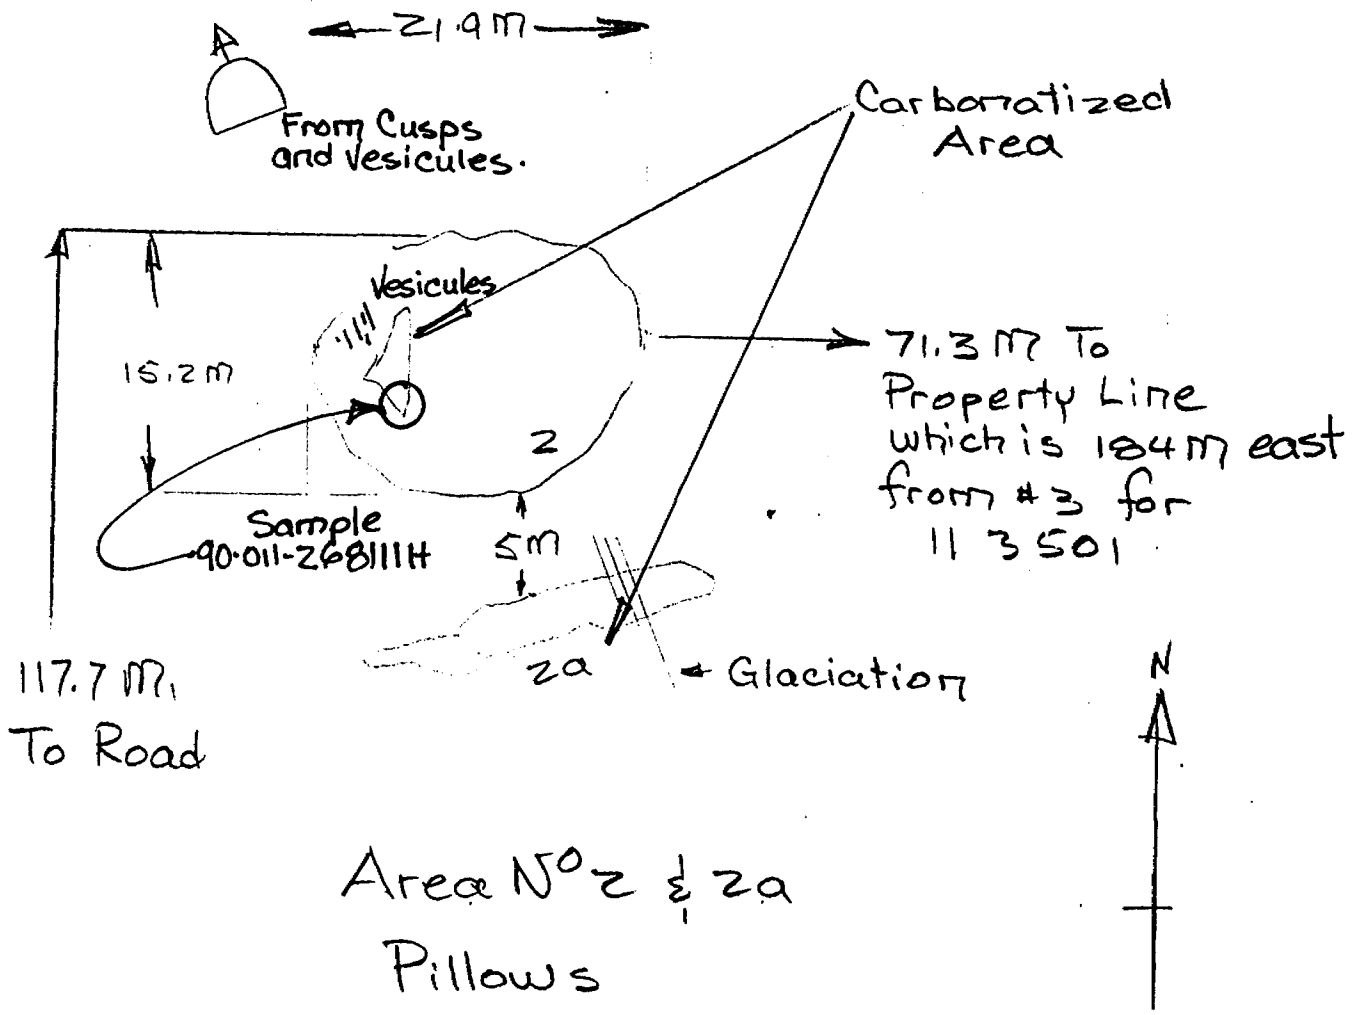 21.9m
From Cusps
and Vesicules.
Carbonatized
Area
Vesicules
15.2m
71.3 m To
Property Line
which is 184m east
from #3 for
113501
2
Sample
90-011-268111H
5m
2a
Glaciation
117.7 m.
To Road
N
Area No 2 & 2a
Pillows